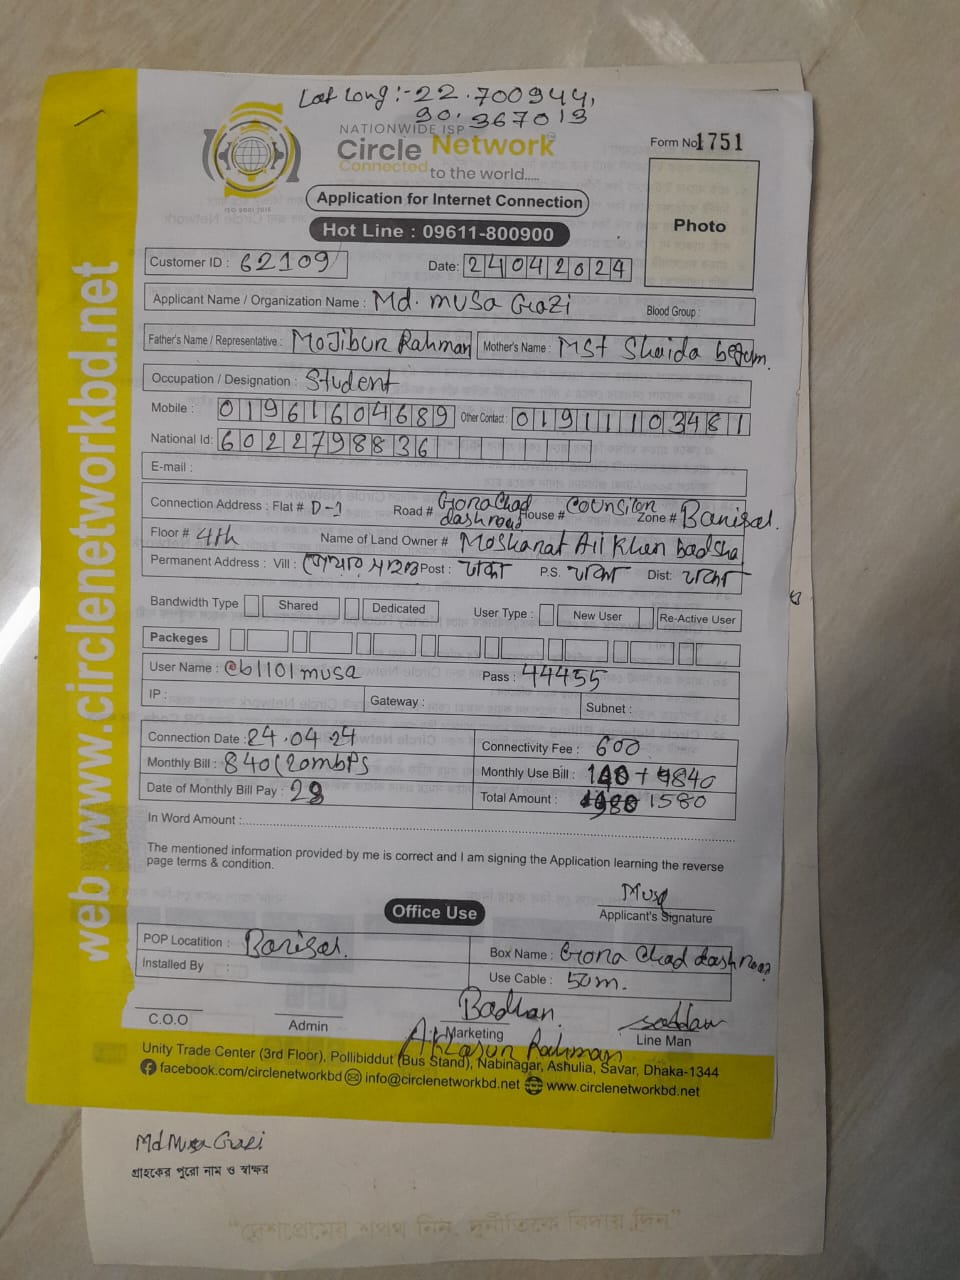 Lat Long:- 22.700944,
90.367013
NATIONWIDE ISP
Circle Network
Connected to the world.....
ISO 9001:2015
Form No 1751
Photo
Application for Internet Connection
Hot Line : 09611-800900
Customer ID : 62109
Date: 24042024
Applicant Name / Organization Name : Md. Musa Grazi
Blood Group :
Father's Name / Representative : Mojibur Rahman Mother's Name : MST Shaida begum.
Occupation / Designation : Student
Mobile : 01961604689 Other Contact : 01911103481
National Id: 6022798836
E-mail :
Connection Address : Flat # D-1 Road # Gorachad dash road House # Zone #
Floor # 4th Name of Land Owner # Ali Khan badsha
Permanent Address : Vill : Post : ঢাকা P.S. ঢাকা Dist: ঢাকা
Bandwidth Type Shared Dedicated User Type : New User Re-Active User
Packeges
User Name : @b1101musa Pass : 44455
IP : Gateway : Subnet :
Connection Date : 24.04.24 Connectivity Fee : 600
Monthly Bill : 840(20mbps Monthly Use Bill : 840
Date of Monthly Bill Pay : Total Amount : 1580
In Word Amount :
The mentioned information provided by me is correct and I am signing the Application learning the reverse
page terms & condition.
Musa
Applicant's Signature
Office Use
POP Locatition : Barisal. Box Name : Gora Chad dash road
Installed By : Use Cable : 50m.
Badhan.
saddam
C.O.O Admin Marketing Line Man
Rahman
Unity Trade Center (3rd Floor), Pollibiddut (Bus Stand), Nabinagar, Ashulia, Savar, Dhaka-1344
facebook.com/circlenetworkbd info@circlenetworkbd.net www.circlenetworkbd.net
web: www.circlenetworkbd.net
Md Musa Grazi
গ্রাহকের পুরো নাম ও স্বাক্ষর
“দেশপ্রেমের শপথ নিন, দুর্নীতিকে বিদায় দিন”